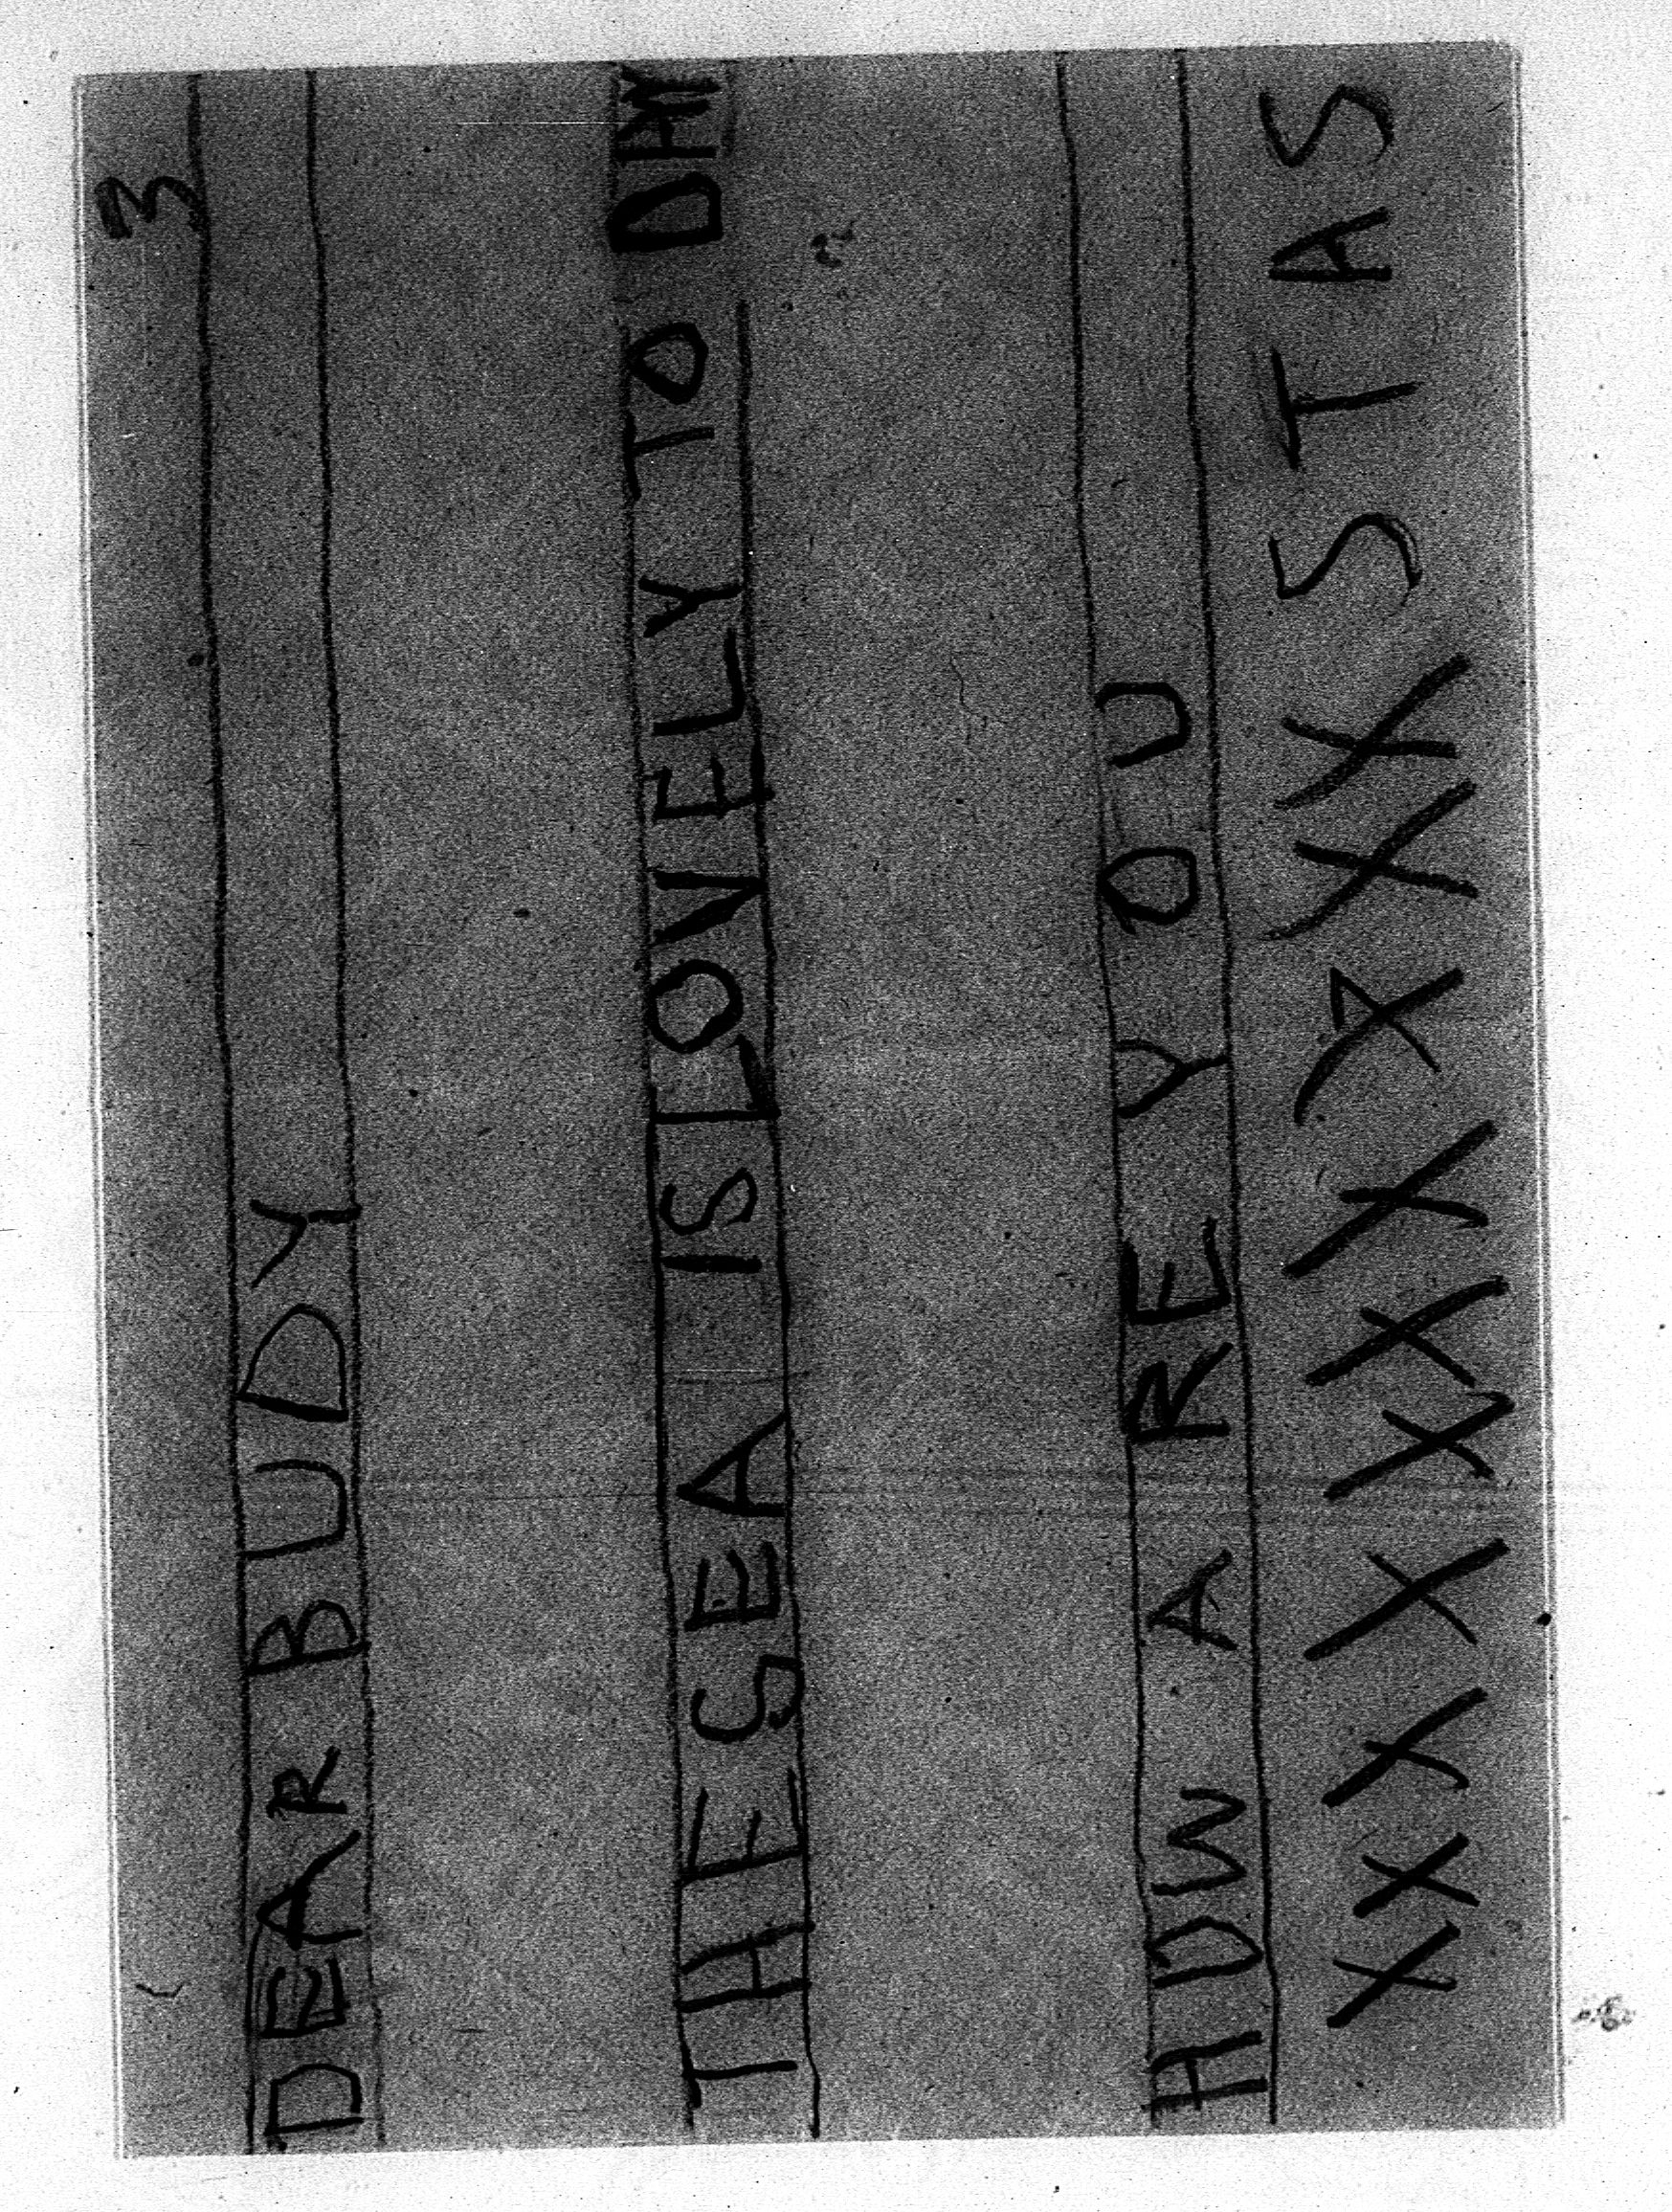 3
DEAR BUDY
THE SEA IS LOVELY TO DAY
HOW A RE YOU
XXXXXXXXXX STAS